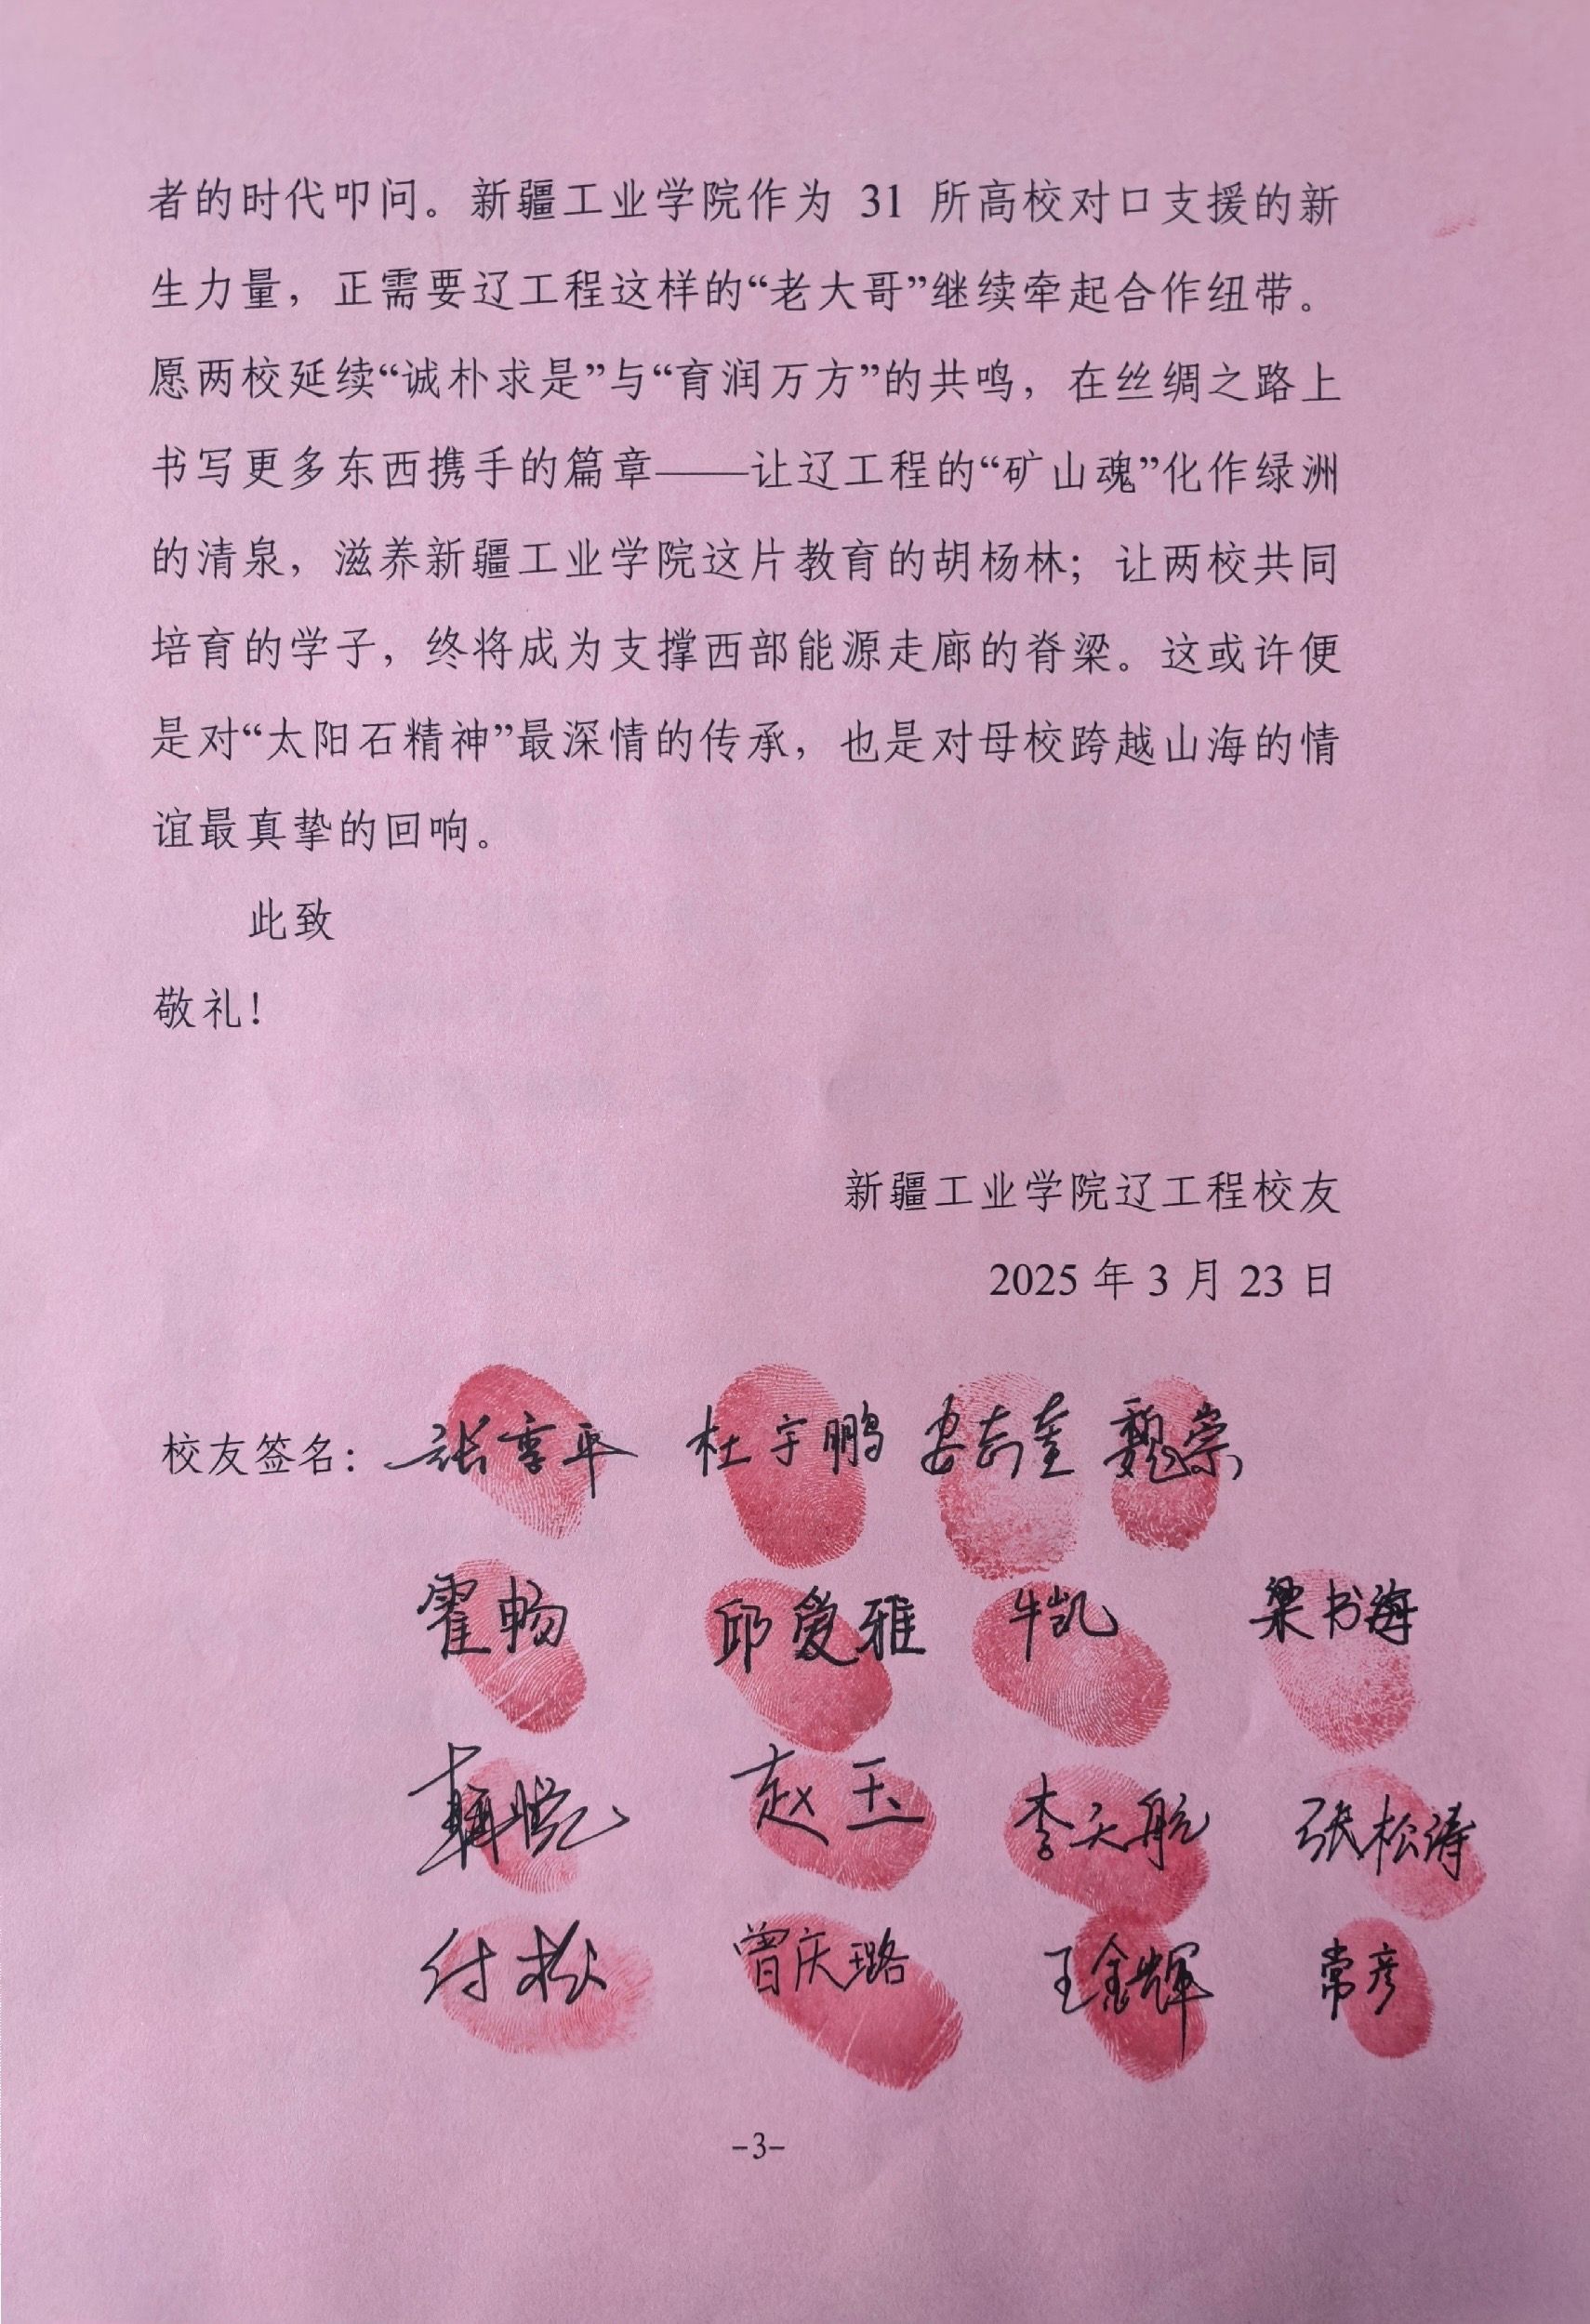 者的时代叩问。新疆工业学院作为 31 所高校对口支援的新
生力量，正需要辽工程这样的“老大哥”继续牵起合作纽带。
愿两校延续“诚朴求是”与“育润万方”的共鸣，在丝绸之路上
书写更多东西携手的篇章——让辽工程的“矿山魂”化作绿洲
的清泉，滋养新疆工业学院这片教育的胡杨林；让两校共同
培育的学子，终将成为支撑西部能源走廊的脊梁。这或许便
是对“太阳石精神”最深情的传承，也是对母校跨越山海的情
谊最真挚的回响。
此致
敬礼！
新疆工业学院辽工程校友
2025 年 3 月 23 日
校友签名：张享平 杜宇鹏 安志奎 魏崇
霍畅 邱爱雅 牛凯 梁书海
赵玉 李天航 张松涛
付松 曾庆璐 王金辉 常彦
-3-